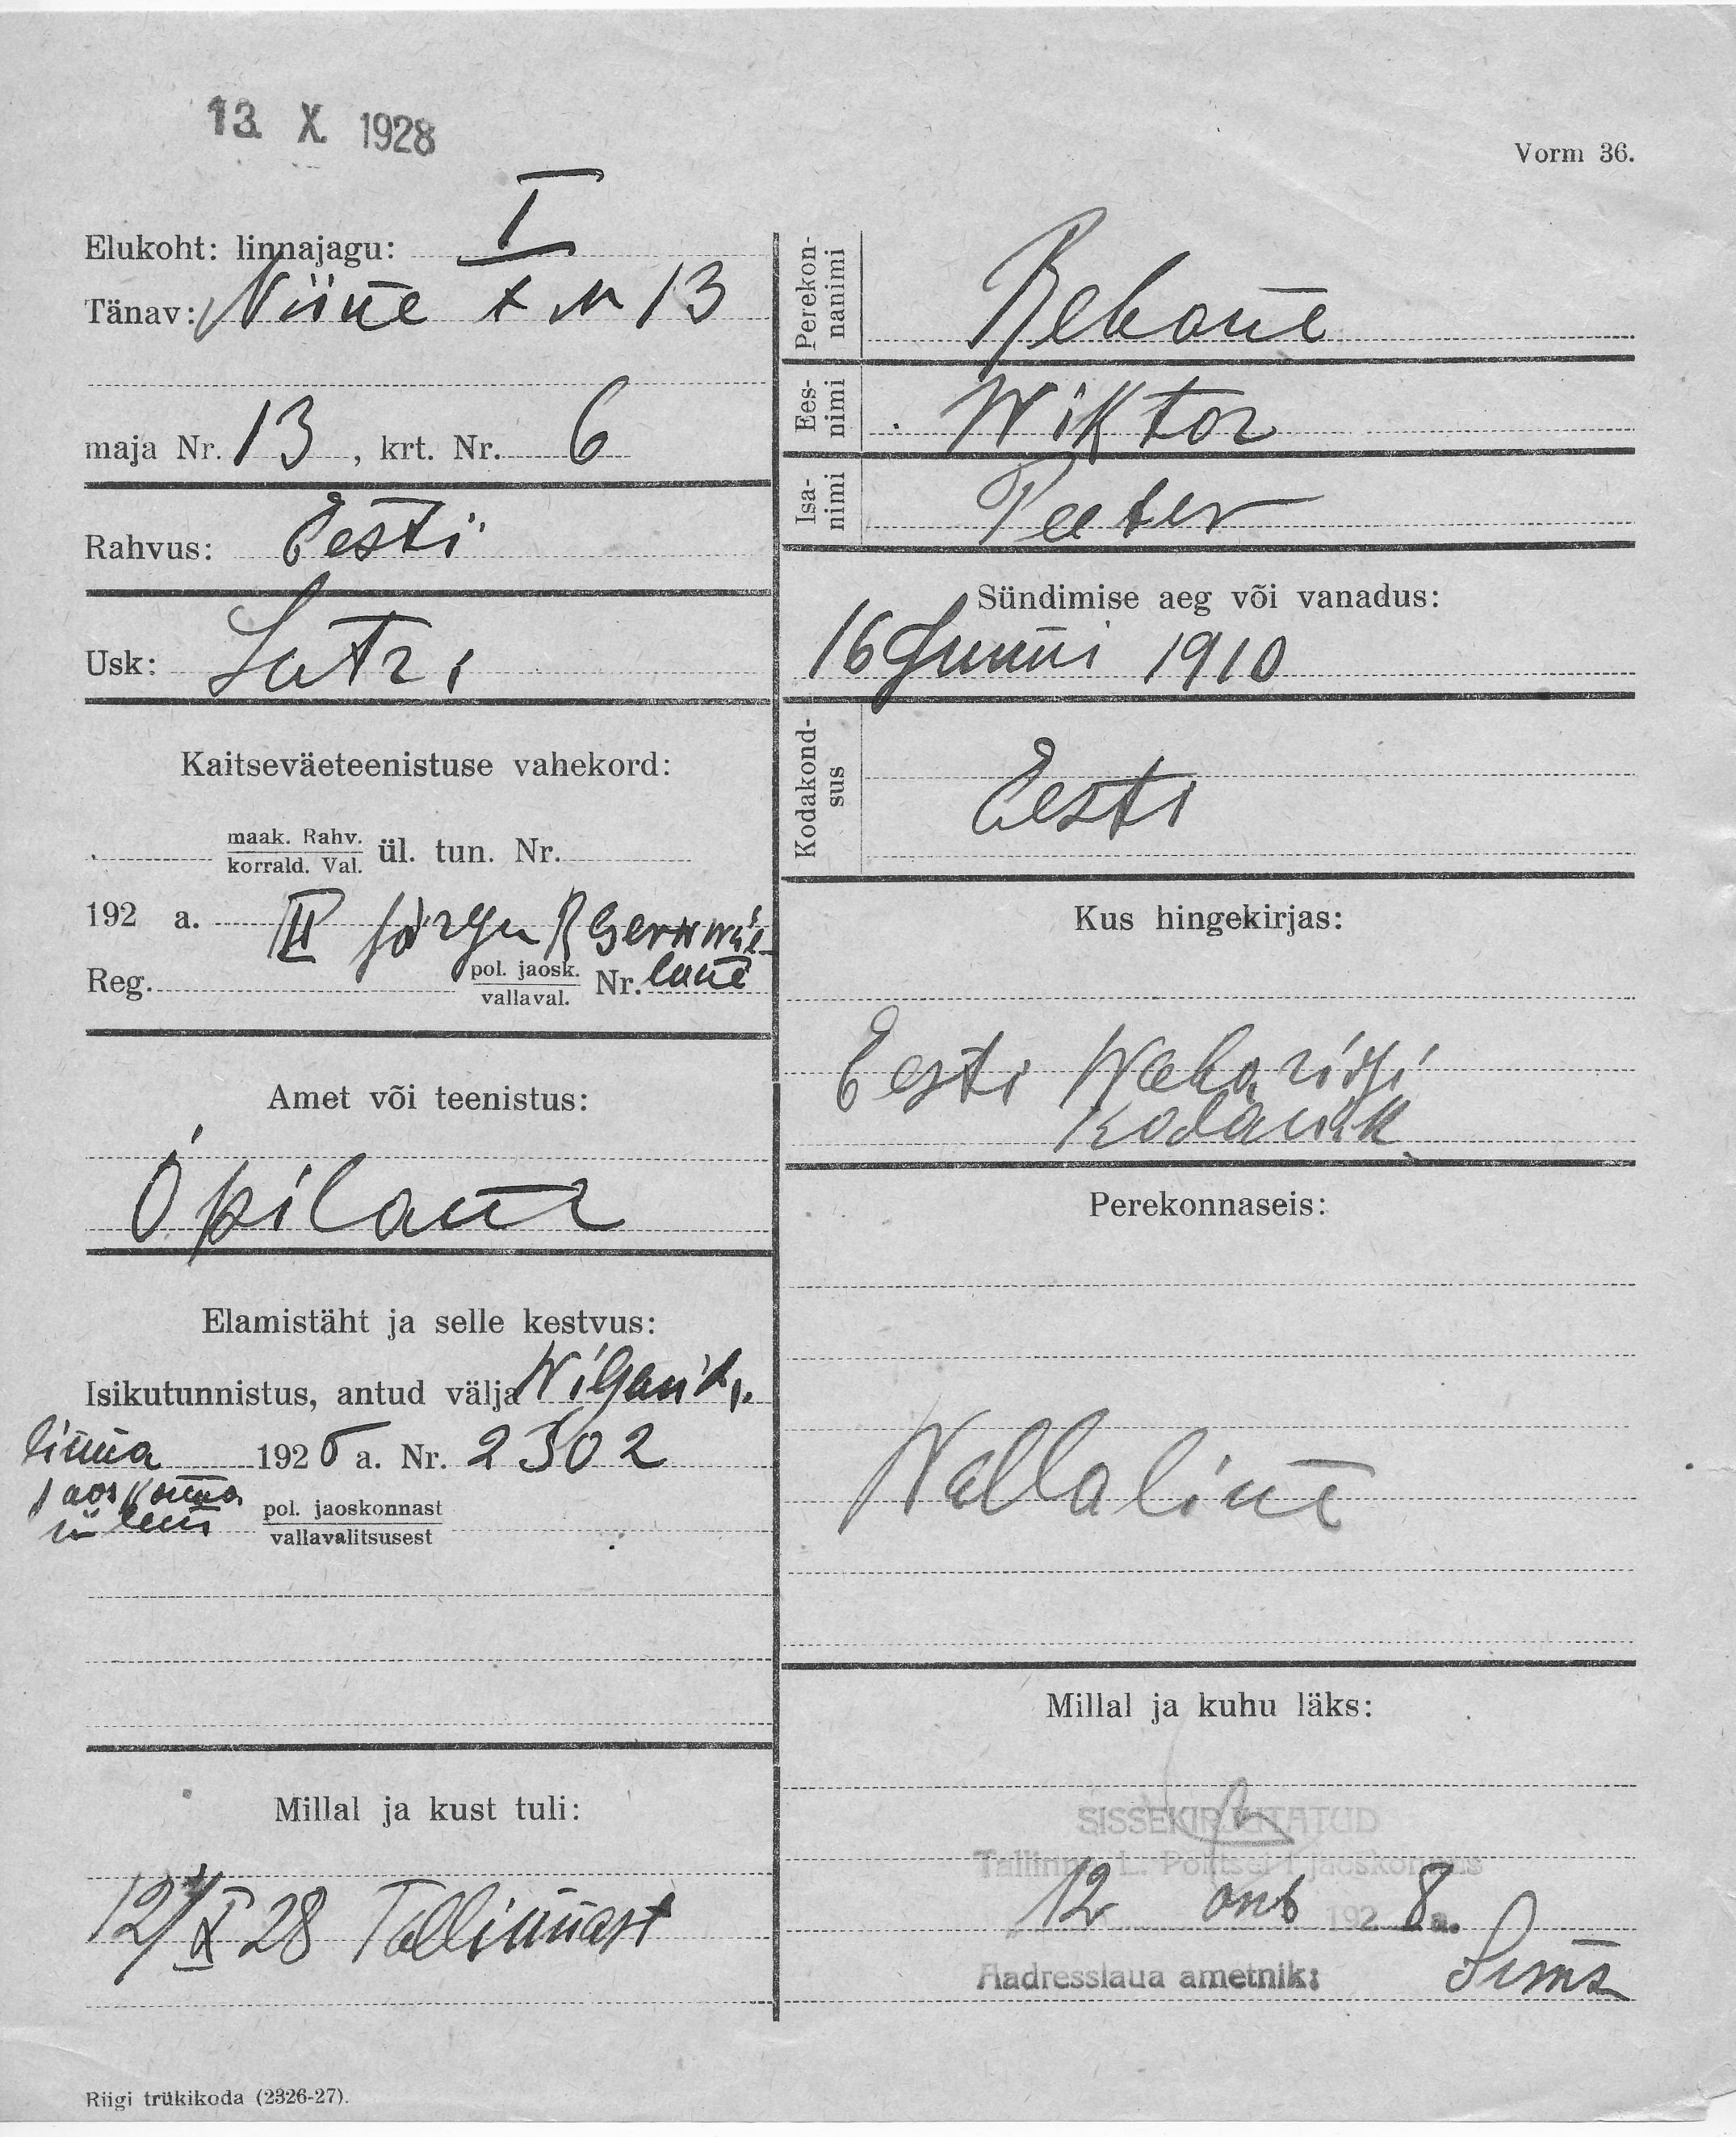 13. X 1928
Vorm 36.
Elukoht: linnajagu: I
Tänav: Niine t N 13
maja Nr. 13, krt. Nr. 6
Rahvus: Eesti
Usk: Lutri
Kaitseväeteenistuse vahekord:
maak. Rahv.
korrald. Val. ül. tun. Nr.
192 a. II järgu Reservväe-
Reg. pol. jaosk. Nr. lane
vallaval.
Amet või teenistus:
Õpilane
Elamistäht ja selle kestvus:
Isikutunnistus, antud välja
linna 1926 a. Nr. 2302
jaoskonna
ülem pol. jaoskonnast
vallavalitsusest
Millal ja kust tuli:
12/X 28 Tallinnast
Riigi trükikoda (2326-27).
Perekon-
nanimi Rebane
Ees-
nimi Wiktor
Isa-
nimi Peeter
Sündimise aeg või vanadus:
16 Juuni 1910
Kodakond-
sus Eesti
Kus hingekirjas:
Eesti Wabariigi
Kodanik
Perekonnaseis:
Wallaline
Millal ja kuhu läks:
SISSEKIRJUTATUD
Tallinna L. Politsei I jaoskonnas
12 okt 1928 a.
Aadresslaua ametnik: